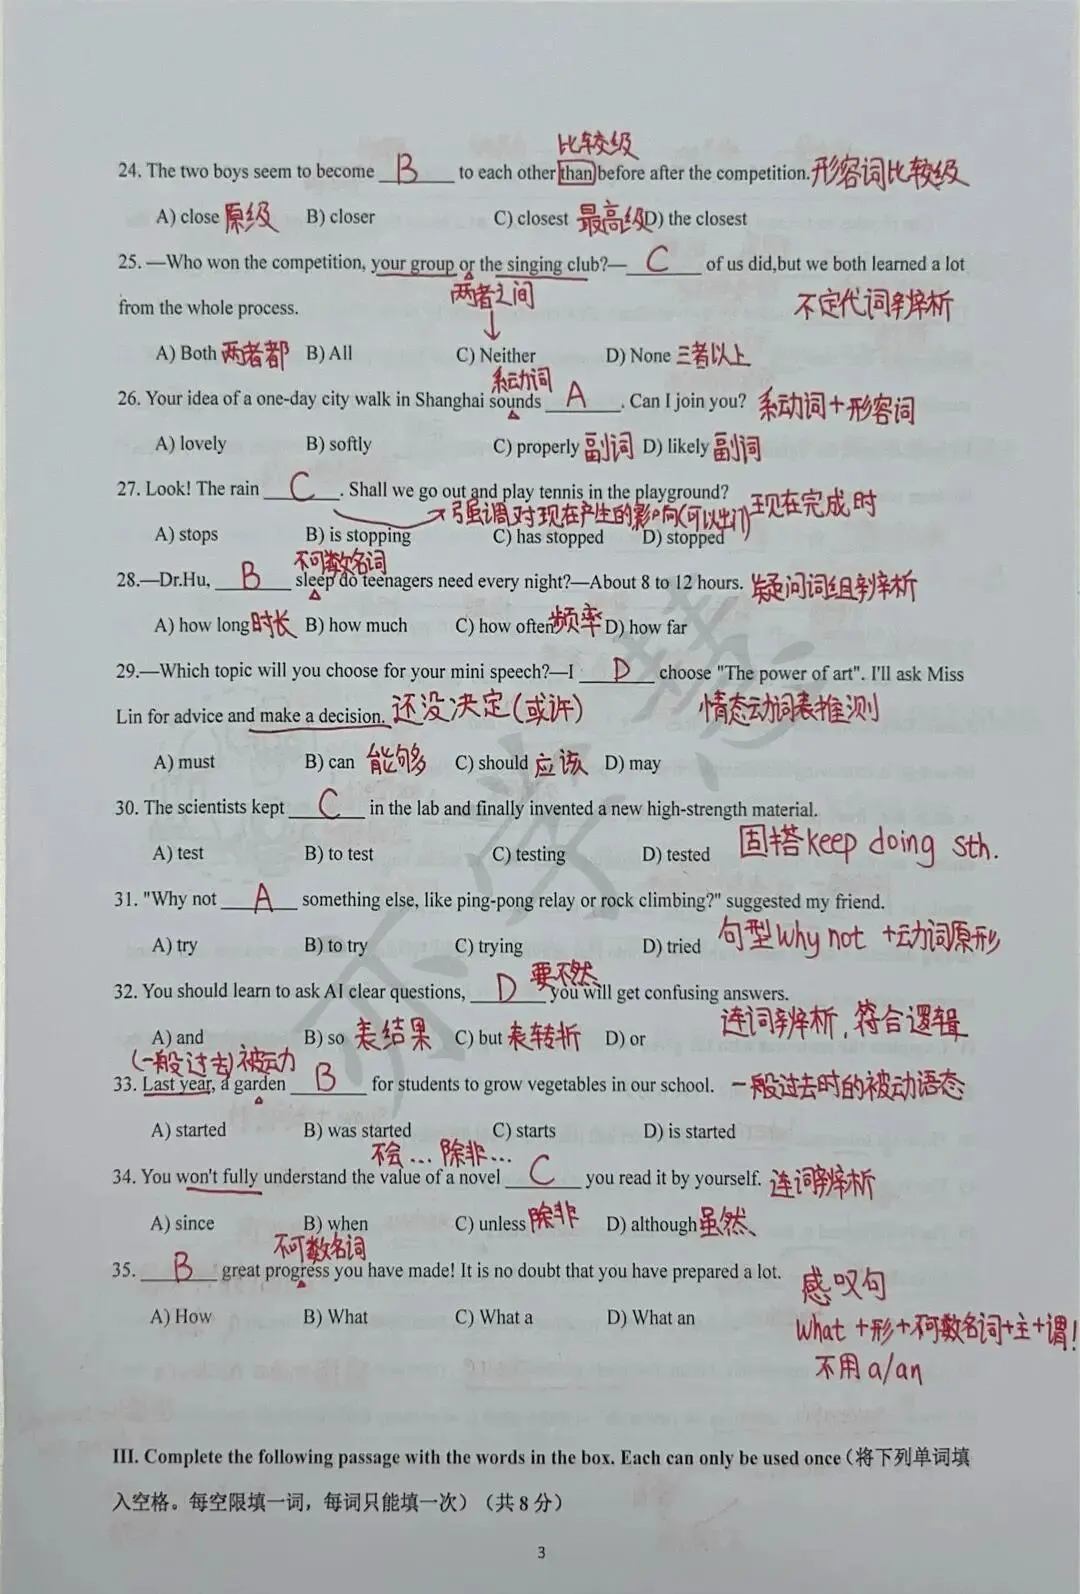 比较级
24. The two boys seem to become B to each other than before after the competition. 形容词比较级
A) close 原级 B) closer C) closest 最高级 D) the closest
25. —Who won the competition, your group or the singing club?— C of us did,but we both learned a lot
两者之间
from the whole process. 不定代词辨析
A) Both 两者都 B) All C) Neither D) None 三者以上
系动词
26. Your idea of a one-day city walk in Shanghai sounds A . Can I join you? 系动词+形容词
A) lovely B) softly C) properly 副词 D) likely 副词
27. Look! The rain C . Shall we go out and play tennis in the playground?
强调对现在产生的影响(可以出门) 现在完成时
A) stops B) is stopping C) has stopped D) stopped
不可数名词
28.—Dr.Hu, B sleep do teenagers need every night?—About 8 to 12 hours. 疑问词组辨析
A) how long 时长 B) how much C) how often 频率 D) how far
29.—Which topic will you choose for your mini speech?—I D choose "The power of art". I'll ask Miss
Lin for advice and make a decision. 还没决定(或许) 情态动词表推测
A) must B) can 能够 C) should 应该 D) may
30. The scientists kept C in the lab and finally invented a new high-strength material.
A) test B) to test C) testing D) tested 固搭keep doing sth.
31. "Why not A something else, like ping-pong relay or rock climbing?" suggested my friend.
A) try B) to try C) trying D) tried 句型Why not +动词原形
要不然
32. You should learn to ask AI clear questions, D you will get confusing answers.
连词辨析,符合逻辑
A) and B) so 表结果 C) but 表转折 D) or
(一般过去)被动
33. Last year, a garden B for students to grow vegetables in our school. 一般过去时的被动语态
A) started B) was started C) starts D) is started
不会... 除非...
34. You won't fully understand the value of a novel C you read it by yourself. 连词辨析
A) since B) when C) unless 除非 D) although 虽然
不可数名词
35. B great progress you have made! It is no doubt that you have prepared a lot.
感叹句
A) How B) What C) What a D) What an
What +形+不可数名词+主+谓!
不用a/an
III. Complete the following passage with the words in the box. Each can only be used once（将下列单词填
入空格。每空限填一词，每词只能填一次）（共 8 分）
3